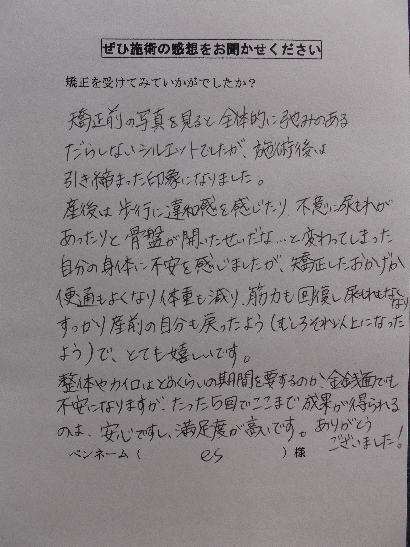 ぜひ施術の感想をお聞かせください
矯正を受けてみていかがでしたか？
矯正前の写真を見ると全体的に弛みのある
だらしないシルエットでしたが、施術後は
引き締まった印象になりました。
産後は歩行に違和感を感じたり、不意に尿もれが
あったりと骨盤が開いたせいだな…と変わってしまった
自分の身体に不安を感じましたが、矯正したおかげか
便通もよくなり体重も減り、筋力も回復し尿もれもなくなり
すっかり産前の自分も戻ったよう(むしろそれ以上になった
よう)で、とても嬉しいです。
整体やカイロはどのくらいの期間を要するのか、金銭面でも
不安になりますが、たった5回でここまで成果が得られる
のは、安心ですし、満足度が高いです。ありがとう
ございました！
ペンネーム（ es ）様